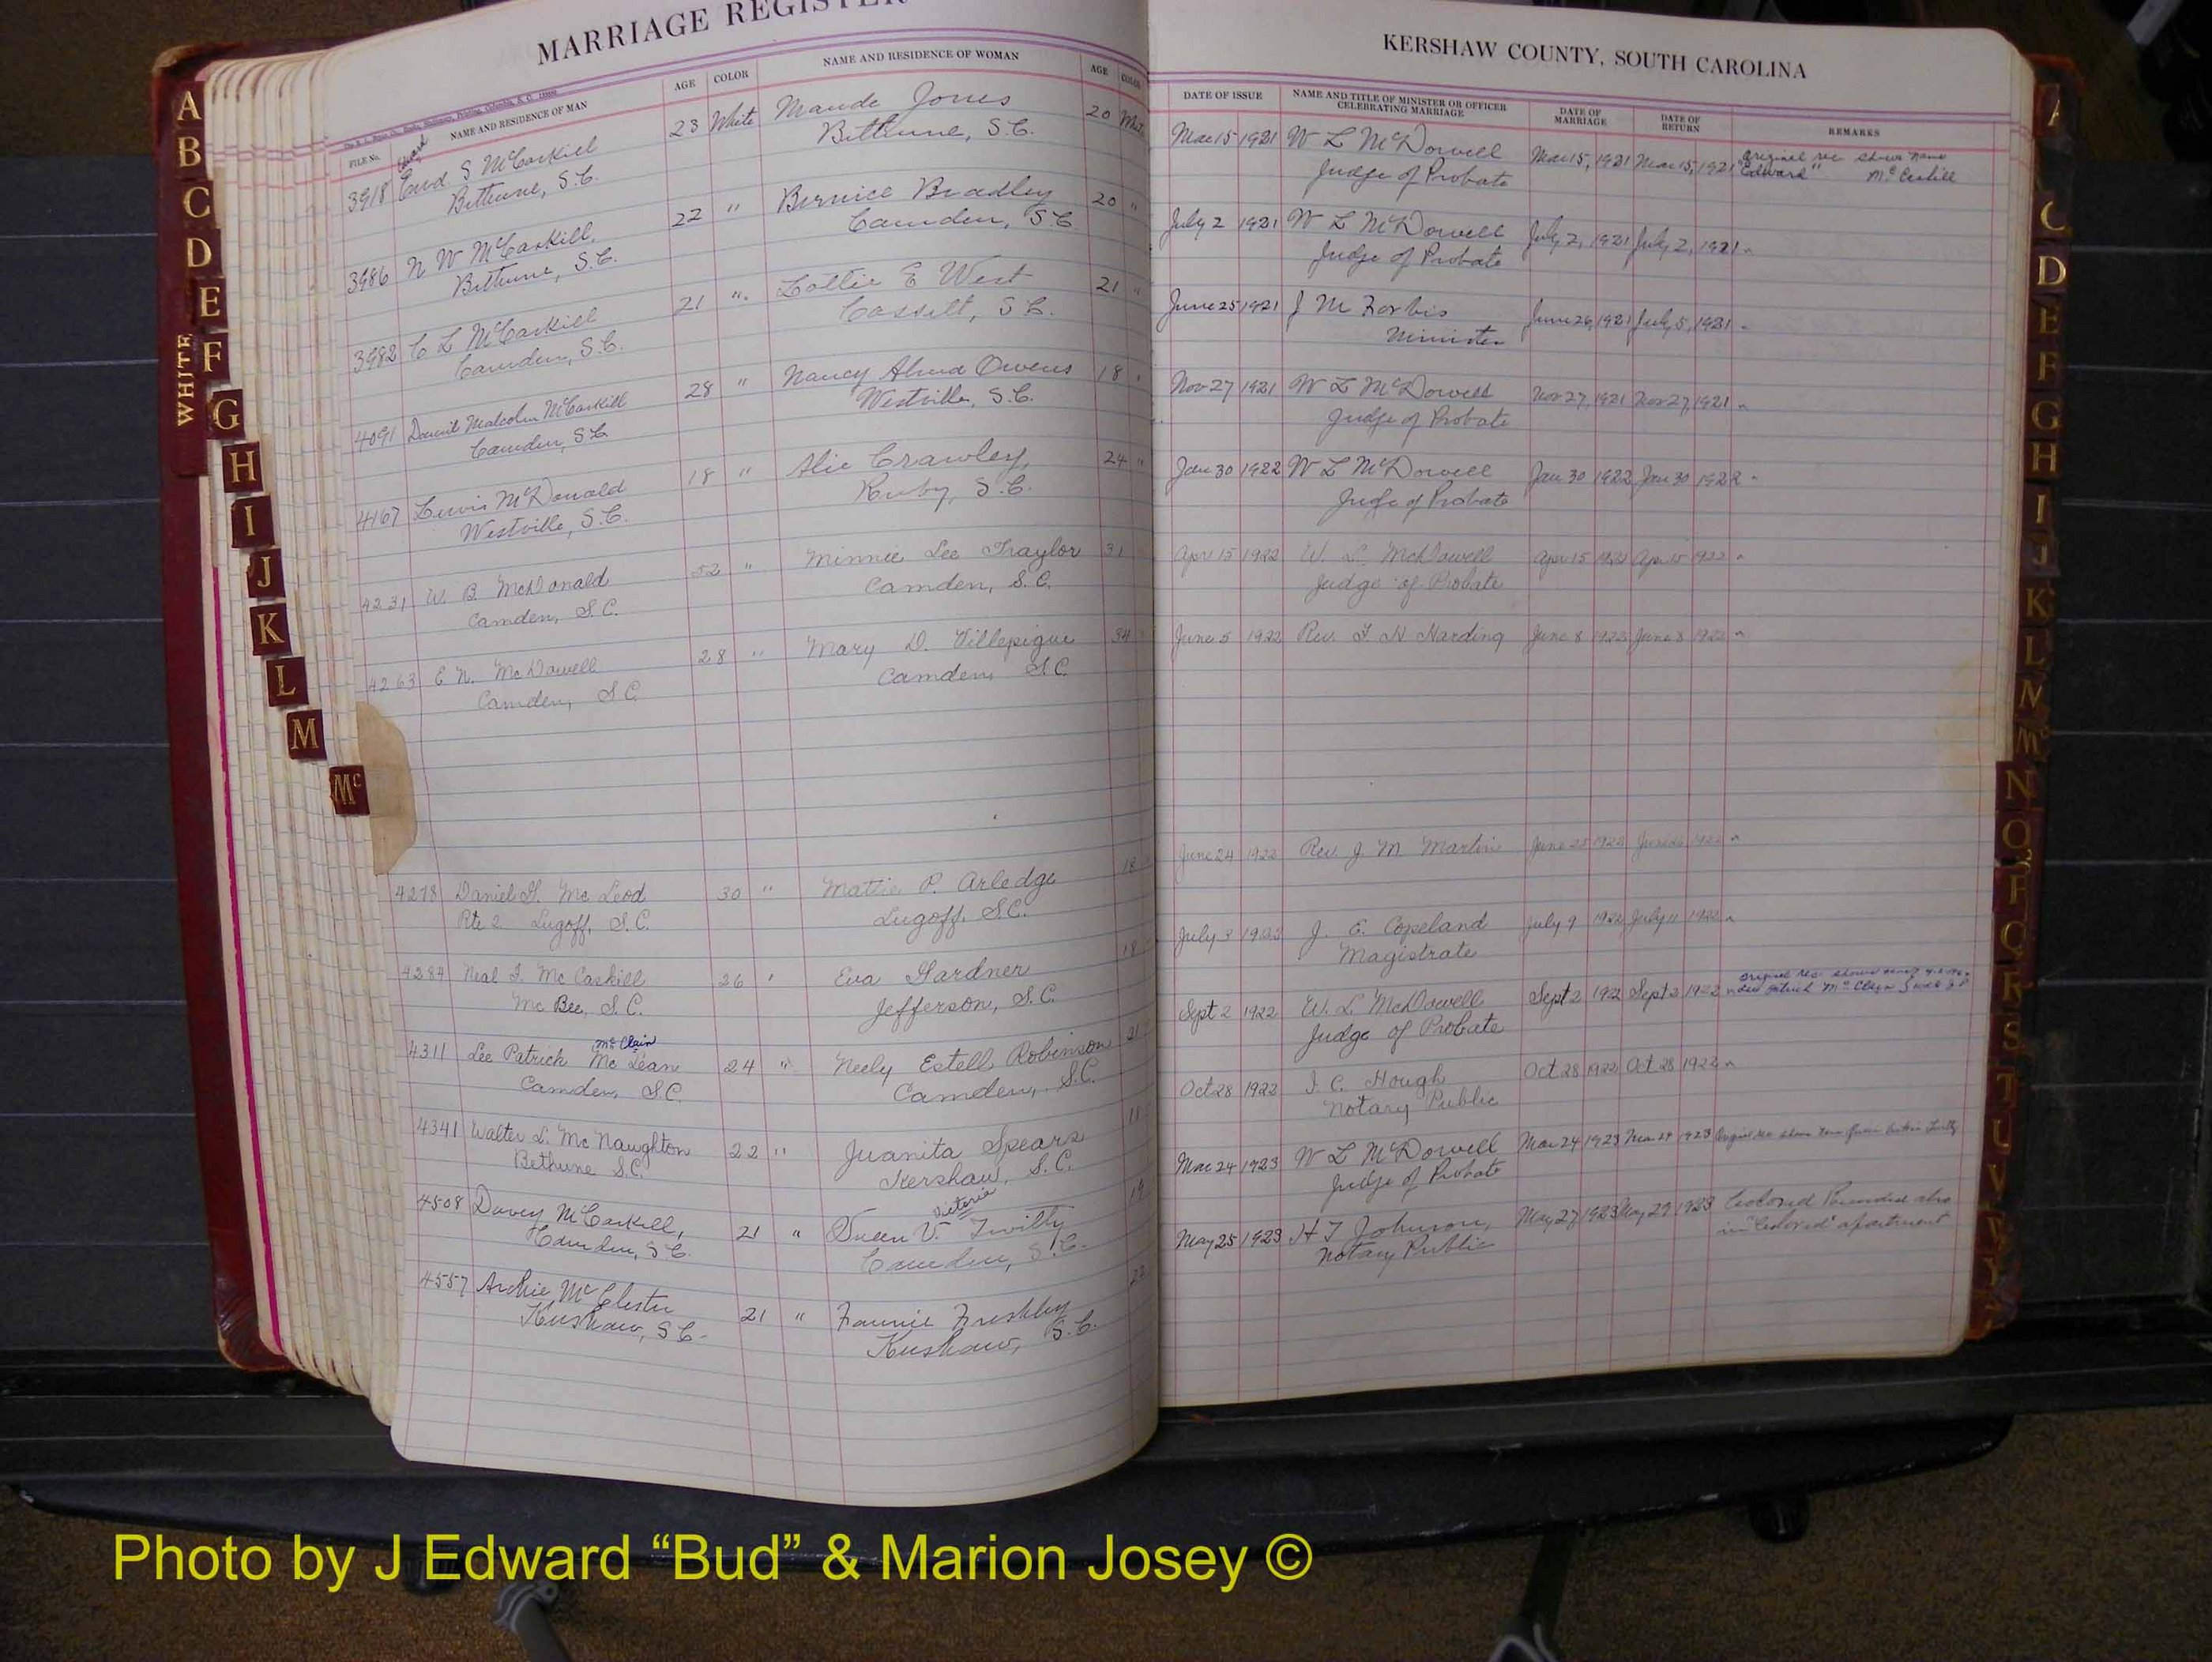 MARRIAGE REGISTER
KERSHAW COUNTY, SOUTH CAROLINA
FILE No. NAME AND RESIDENCE OF MAN AGE COLOR NAME AND RESIDENCE OF WOMAN AGE COLOR
DATE OF ISSUE NAME AND TITLE OF MINISTER OR OFFICER CELEBRATING MARRIAGE DATE OF MARRIAGE DATE OF RETURN REMARKS
Edward
3918 S McCaskill 23 White Maude Jones 20 White
Bethune, S.C. Bethune, S.C.
3986 N W McCaskill, 22 " Bernice Bradley 20 "
Bethune, S.C. Camden, S.C.
3982 C L McCaskill 21 " Lottie E West 21 "
Camden, S.C. Cassatt, S.C.
4091 Malcolm McCaskill 28 " Nancy Owens 18 "
Camden, S.C. Westville, S.C.
4167 Lewis McDonald 18 " Alie Crawley, 24 "
Westville, S.C. Ruby, S.C.
4231 W. B. McDonald 52 " Minnie Lee Traylor 31
Camden, S.C. Camden, S.C.
4263 E. N. McDowell 28 " Mary D. Villepigue 34
Camden, S.C. Camden, S.C.
4278 Daniel H. McLeod 30 " Mattie P. Arledge 18
Rte 2. Lugoff, S.C. Lugoff, S.C.
4284 Neal McCaskill 26 " Eva Gardner 18
Mc Bee, S.C. Jefferson, S.C.
McClain
4311 Lee Patrick McLean 24 " Neely Estell Robinson 21
Camden, S.C. Camden, S.C.
4341 Walter L. McNaughton 22 " Juanita Spears 18
Bethune S.C. Kershaw, S.C.
Victoria
4508 Davey McCaskill, 21 " Queen V. Twitty 19
Camden, S.C. Camden, S.C.
4557 Archie 21 " Fannie 22
Kershaw, S.C. Kershaw, S.C.
Mar 15 1921 W L McDowell Mar 15, 1921 Mar 15, 1921 Original rec shows name
Judge of Probate "Edward" McCaskill
July 2 1921 W L McDowell July 2, 1921 July 2, 1921
Judge of Probate
June 25 1921 J M Forbis June 26, 1921 July 5, 1921
Minister
Nov 27 1921 W L McDowell Nov 27, 1921 Nov 27, 1921
Judge of Probate
Jan 30 1922 W L McDowell Jan 30 1922 Jan 30 1922
Judge of Probate
Apr 15 1922 W. L. McDowell Apr 15 1922 Apr 15 1922
Judge of Probate
June 5 1922 Rev. F. H. Harding June 8 1922 June 8 1922
June 24 1922 Rev. J. M. Martin June 25 1922 June 26 1922
July 3 1922 J. E. Copeland July 9 1922 July 11 1922
Magistrate
Sept 2 1922 W. L. McDowell Sept 2 1922 Sept 2 1922 Original rec. shows
Judge of Probate Lee Patrick McClain
Oct 28 1922 Hough Oct 28 1922 Oct 28 1922
Notary Public
Mar 24 1923 W L McDowell Mar 24 1923 Mar 24 1923 Original rec shows Queen Victoria Twitty
Judge of Probate
May 25 1923 H T Johnson, May 27 1923 May 29 1923 Colored Recorded also
Notary Public in "Colored" apartment
WHITE
A
B
C
D
E
F
G
H
I
J
K
L
M
Mc
A
C
D
E
F
G
H
I
J
K
L
M
Mc
N
O
P
Q
R
S
T
U
V
W
Y
Photo by J Edward “Bud” & Marion Josey ©